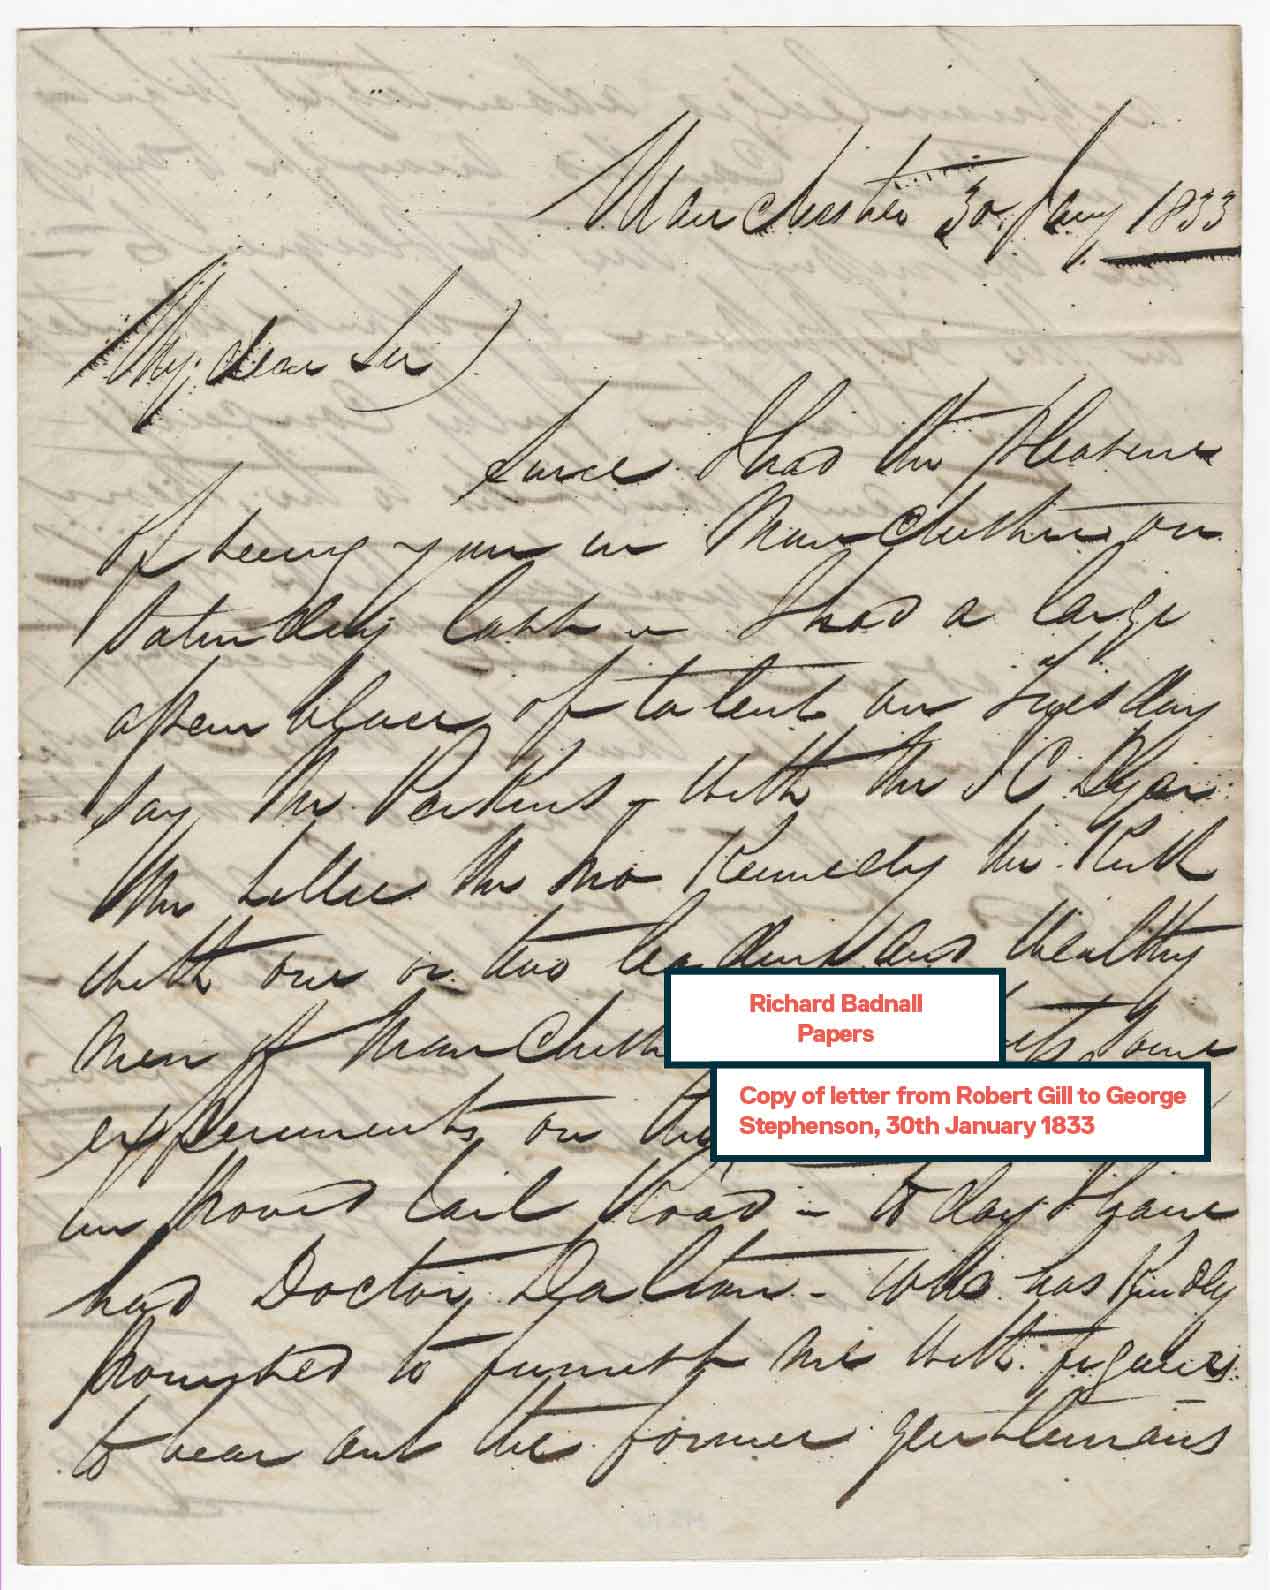 Manchester 30 Jany 1833
My dear Sir
Since I had the pleasure
of seeing you in Manchester on
Saturday last I had a large
assemblage of talent on Tuesday
say Mr Perkins with Mr J C Dyer
Mr Lillie Mr Jno Kennedy Mr
with one or two wealthy
men of some
experiments on the
improved rail Road - to day I have
had Doctor Dalton - who has kindly
promised to furnish me with figures
to bear out the former gentleman's
Richard Badnall
Papers
Copy of letter from Robert Gill to George
Stephenson, 30th January 1833